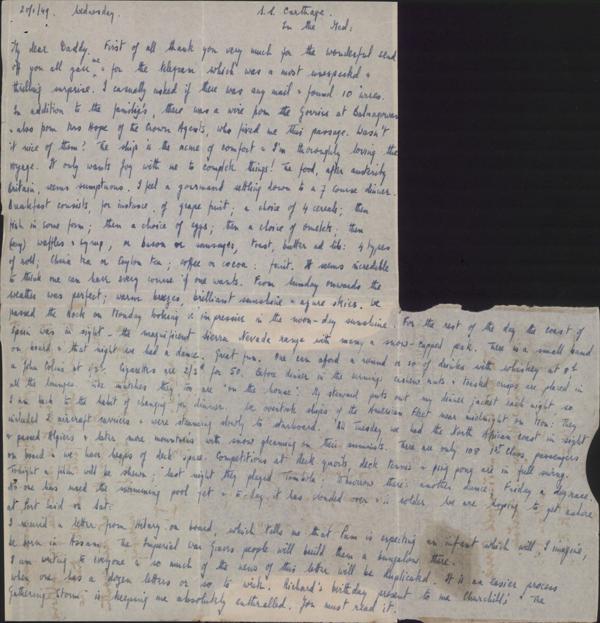 20/1/49. Wednesday. S.S. Carthage.
In the Med:
My dear Daddy. First of all thank you very much for the wonderful send
off you all gave me & for the telegram which was a most unexpected &
thrilling surprise. I casually asked if there was any mail & found 10 wires.
In addition to the family's, there was a wire from the Govrics at Balnagowan
& also from Mrs Hope of the Crown Agents, who fixed me this passage. Wasn't
it nice of them! The ship is the acme of comfort & I'm thoroughly loving the
voyage. It only wants Joy with me to complete things! The food, after austerity
Britain, seems sumptuous. I feel a gourmand settling down to a 7 course dinner.
Breakfast consists, for instance, of grape fruit; a choice of 4 cereals; then
fish in some form; then a choice of eggs; then a choice of omelets; then
waffles & syrup, or bacon or sausages, toast, butter ad lib: 4 types
of roll; China tea or Ceylon tea; coffee or cocoa: fruit. It seems incredible
to think one can have every course if one wants. From Sunday onwards the
weather was perfect; warm breezes, brilliant sunshine & azure skies. We
passed the Rock on Monday looking impressive in the noon-day sunshine. For the rest of the day the coast of
Spain was in sight – the magnificent Sierra Nevada range with many a snow-capped peak. There is a small band
on board & that night we had a dance. Great fun. One can afford a round or so of drinks with whiskey at 8d
a John Collins at Cigarettes are 2/3d for 50. Before dinner in the evenings cashew nuts & crisps are placed in
all the lounges. Like matches they too are "on the house". My steward puts out my dinner jacket each night so
I am back to the habit of changing for dinner. We overtook ships of the American Fleet near midnight on Mon: They
included 2 aircraft carriers & were steaming slowly to starboard. All Tuesday we had the North African coast in sight
& passed Algiers & later more mountains with snow gleaming on their summits. There are only 108 1st Class passengers
on board & we have heaps of deck space. Competitions at deck quoits, deck tennis & ping pong are in full swing.
Tonight a film will be shown; last night they played Tombola. Tomorrow there's another dance: Friday a dog race.
No one has used the swimming pool yet & to-day it has clouded over & is colder. We are hoping to get ashore
at Port Said on Sat:
I received a letter from Hilary on board, which tells me that Pam is expecting an infant which will, I imagine,
be born in Assam. The Imperial War Graves people will build them a bungalow there.
I am writing to everyone & so much of the news of this letter will be duplicated. It is an easier process
when one has a dozen letters or so to write. Richard's birthday present to me Churchill's "The
Gathering Storm" is keeping me absolutely enthralled. You must read it.